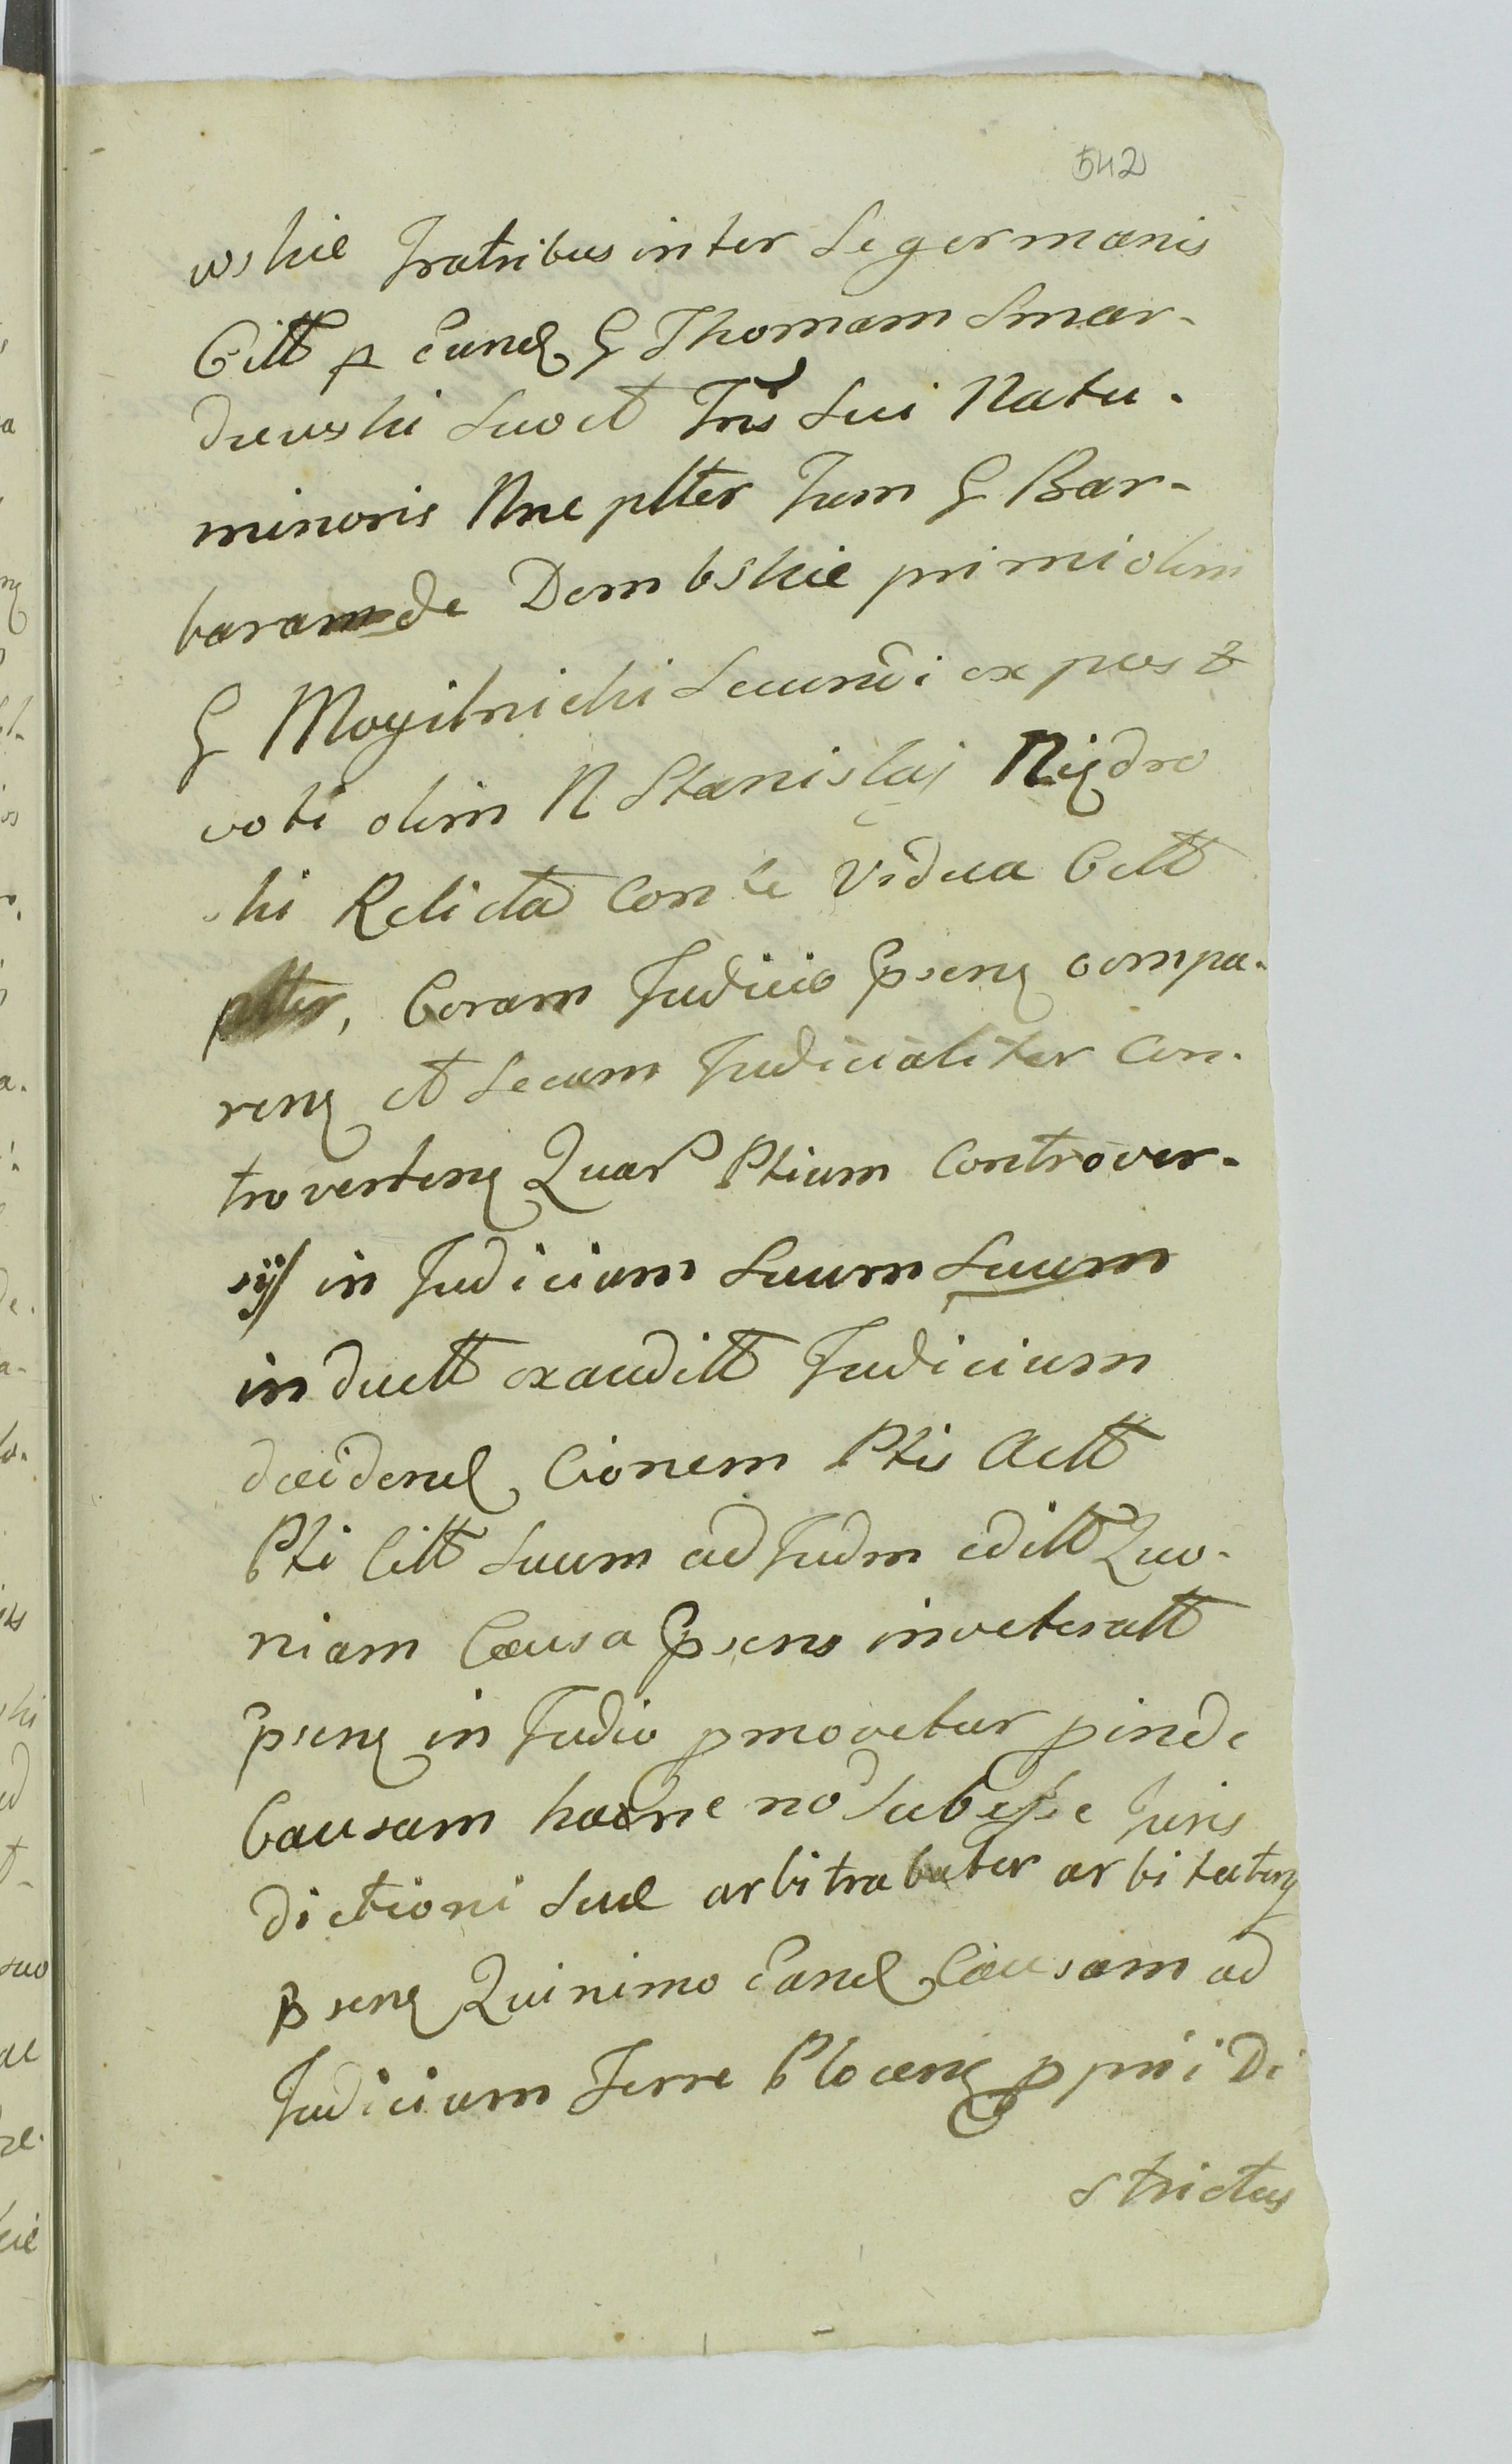 542
wskie Fratribus inter Se germanis
Citt p Eund G Thomam Smar-
dzewski Suo et Fris Sui Natu-
minoris Nne plter Tum G Bar-
baram de Dembskie primi olim
G Mogilnicki Secundi ex pus &
voti olim N Stanislaj Niedro
ski Relicta Conte Vidua Citt
plter, Coram Judicio Psenq compa-
renq et Secum Judicialiter Con-
trovertenq Quar Ptium Controver-
sijs in Judicium Suum Suum
inductt exauditt Judicium
decidend Cionem Ptis Actt
Pti Citt Suum ad Judm editt Quo-
niam Causa Psens inveteratt
Psenq in Judio pmovetur pinde
Causam hacne no Subesse Juris
dictioni Suae arbitrabatur arbitratq
Psenq Quinimo Eand Causam ad
Judicium Terre Plocenq pprii Di
strictus